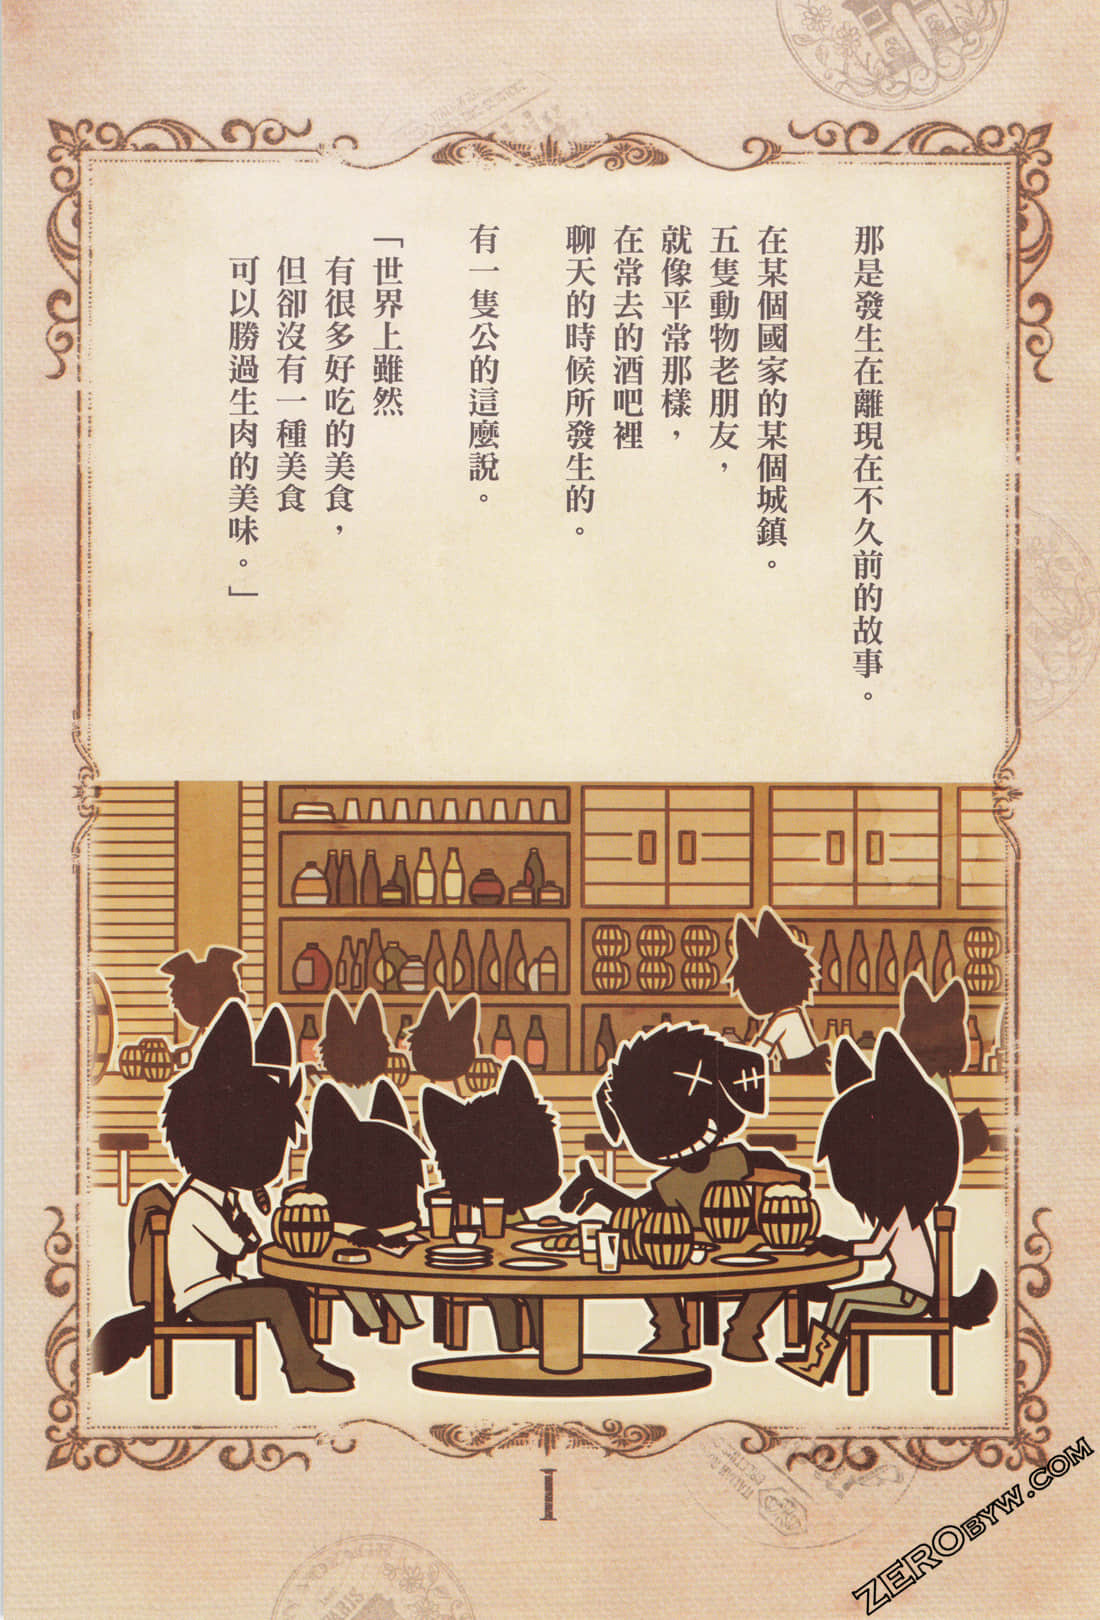 那是發生在離現在不久前的故事。
在某個國家的某個城鎮。
五隻動物老朋友，
就像平常那樣，
在常去的酒吧裡
聊天的時候所發生的。
有一隻公的這麼說。
「世界上雖然
有很多好吃的美食，
但卻沒有一種美食
可以勝過生肉的美味。」
I
ZEROBYW.COM